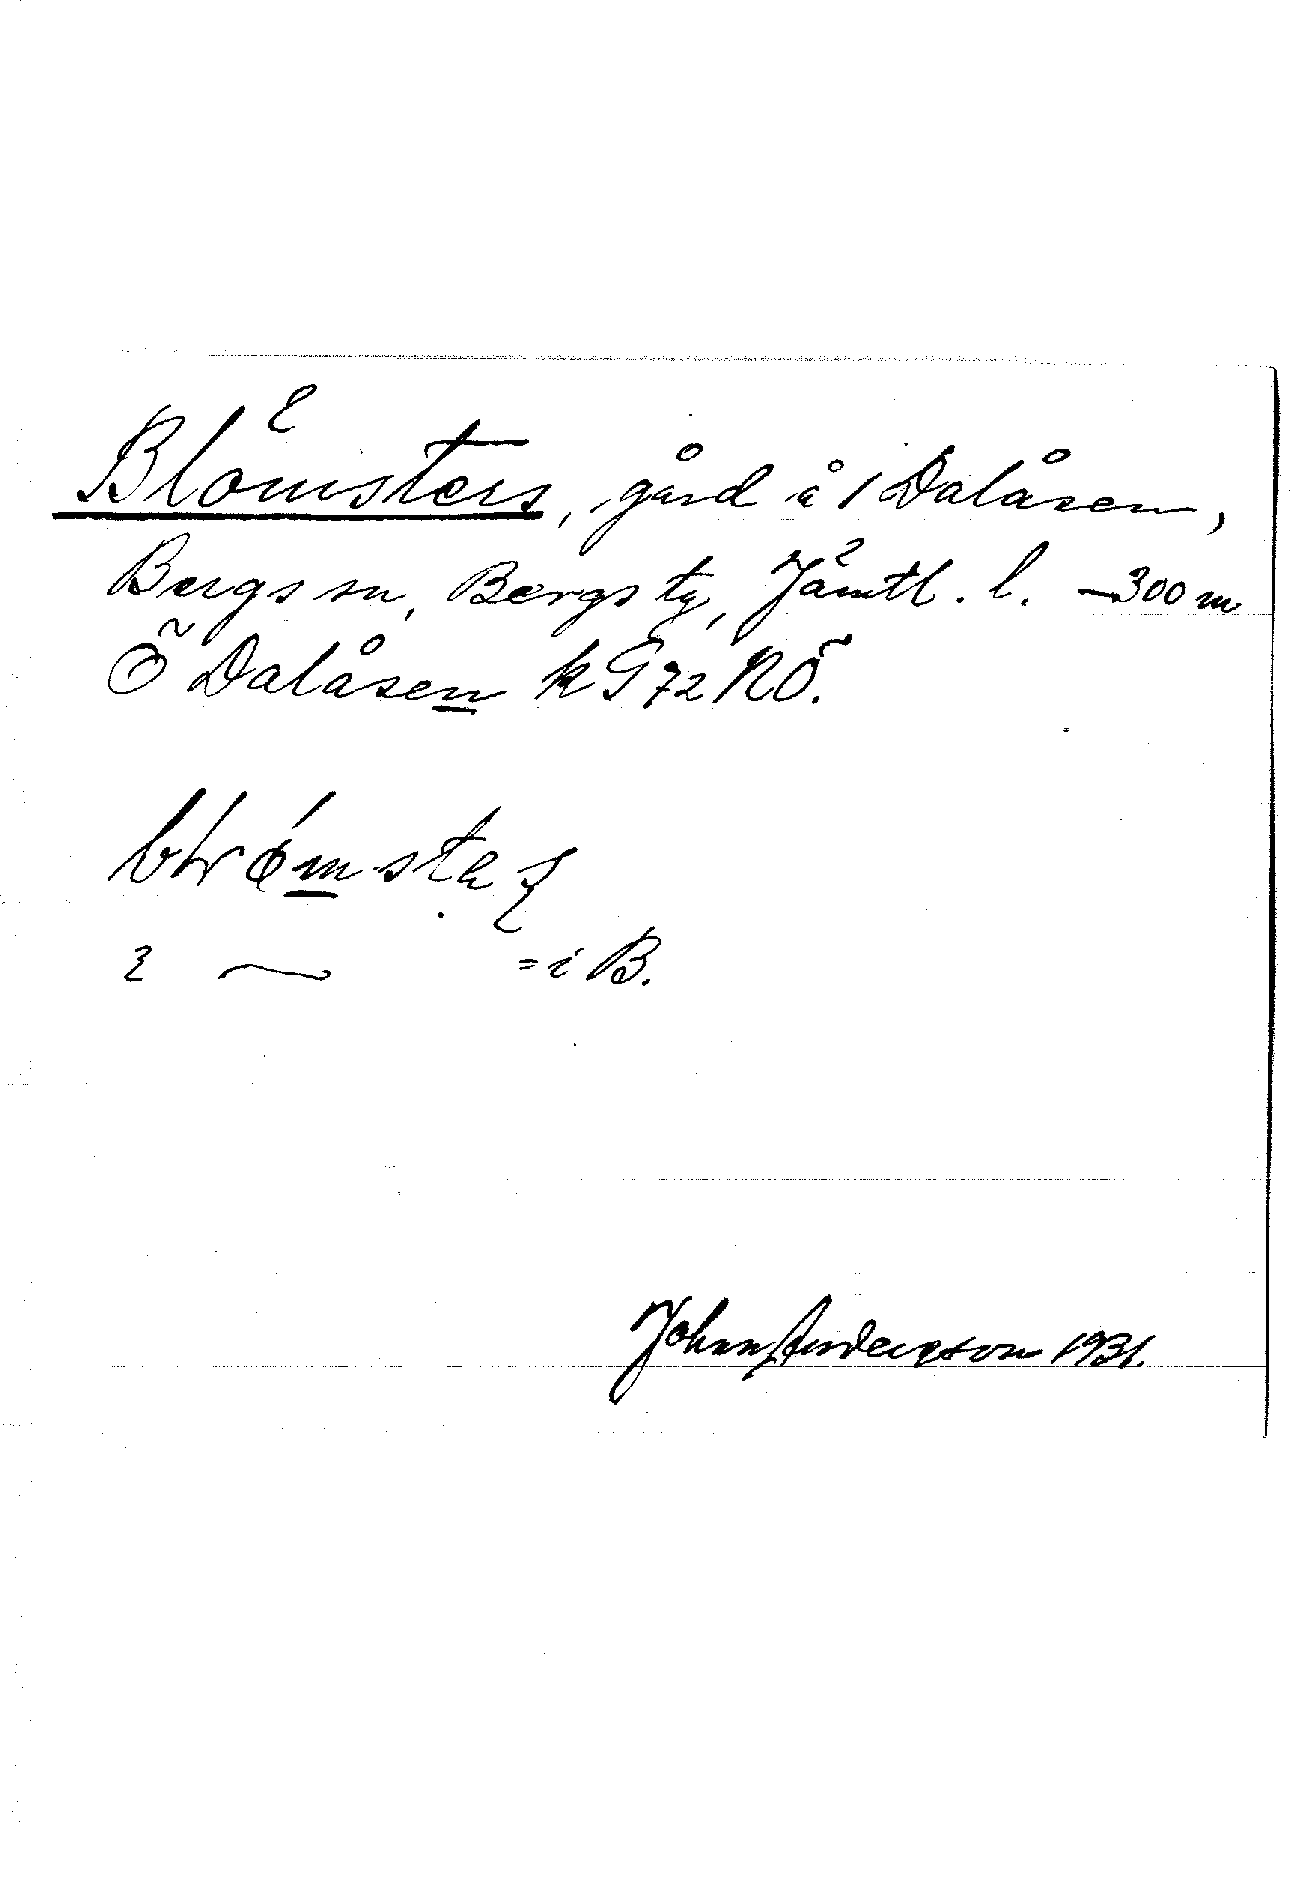 Blömsters, gård å 1 Dalåsen,
Bergs sn, Bergs tg, Jämtl. l. – 300 m
Ö Dalåsen k G 72 NÖ.
i B.
John Anderson 1931.